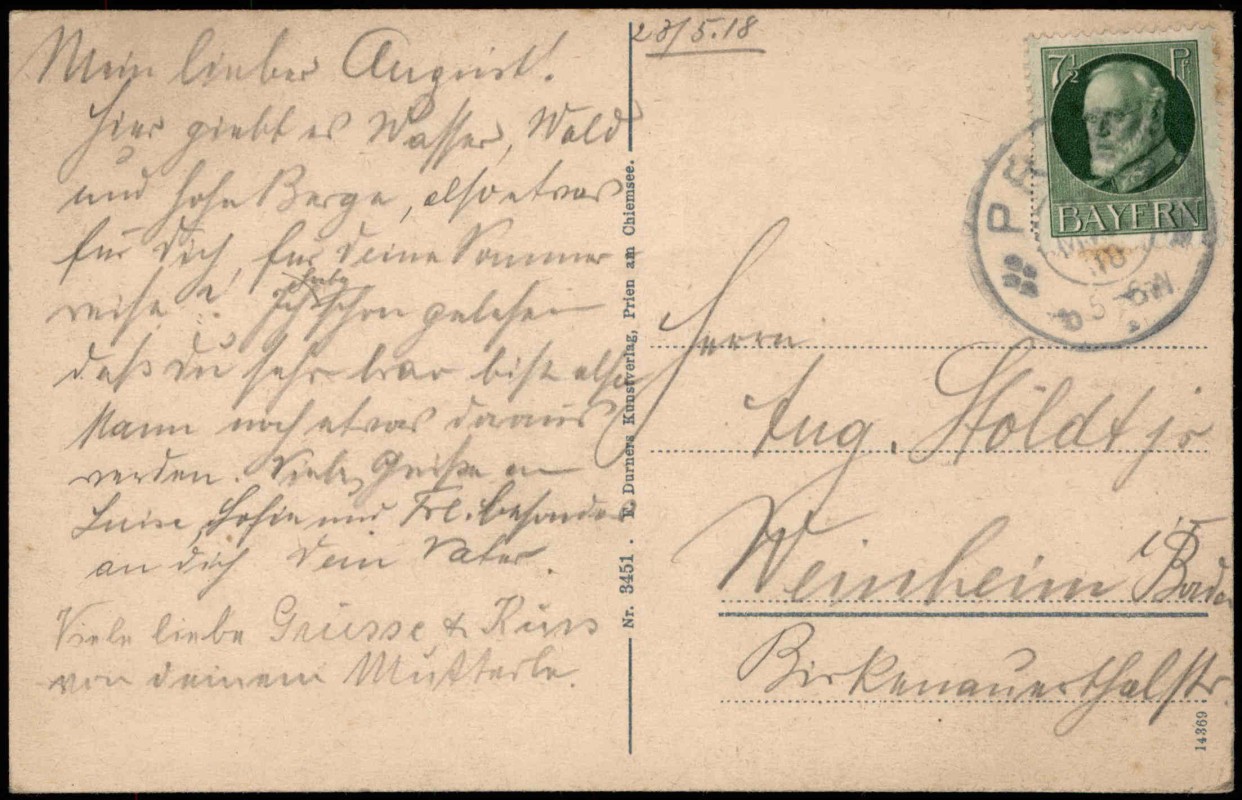 Mein lieber August!
Hier giebt es Wasser, Wald
und hohe Berge, also etwas
für Dich, für deine Sommer
reise? Ich habe schon gelesen
daß Du sehr brav bist also
kann noch etwas daraus
werden. Viele Grüße an
Luise, Sofie und Frl. besonders
an dich Dein Vater.
Viele liebe Grüsse & Kuss
von deinem Mutterle.
Nr. 3451. F. Durners Kunstverlag, Prien am Chiemsee.
23/5.18
7½ Pf
BAYERN
5-6 N
Herrn
Aug. Höldt jr
Weinheim i/
Baden
Birkenauerthalstr.
14369